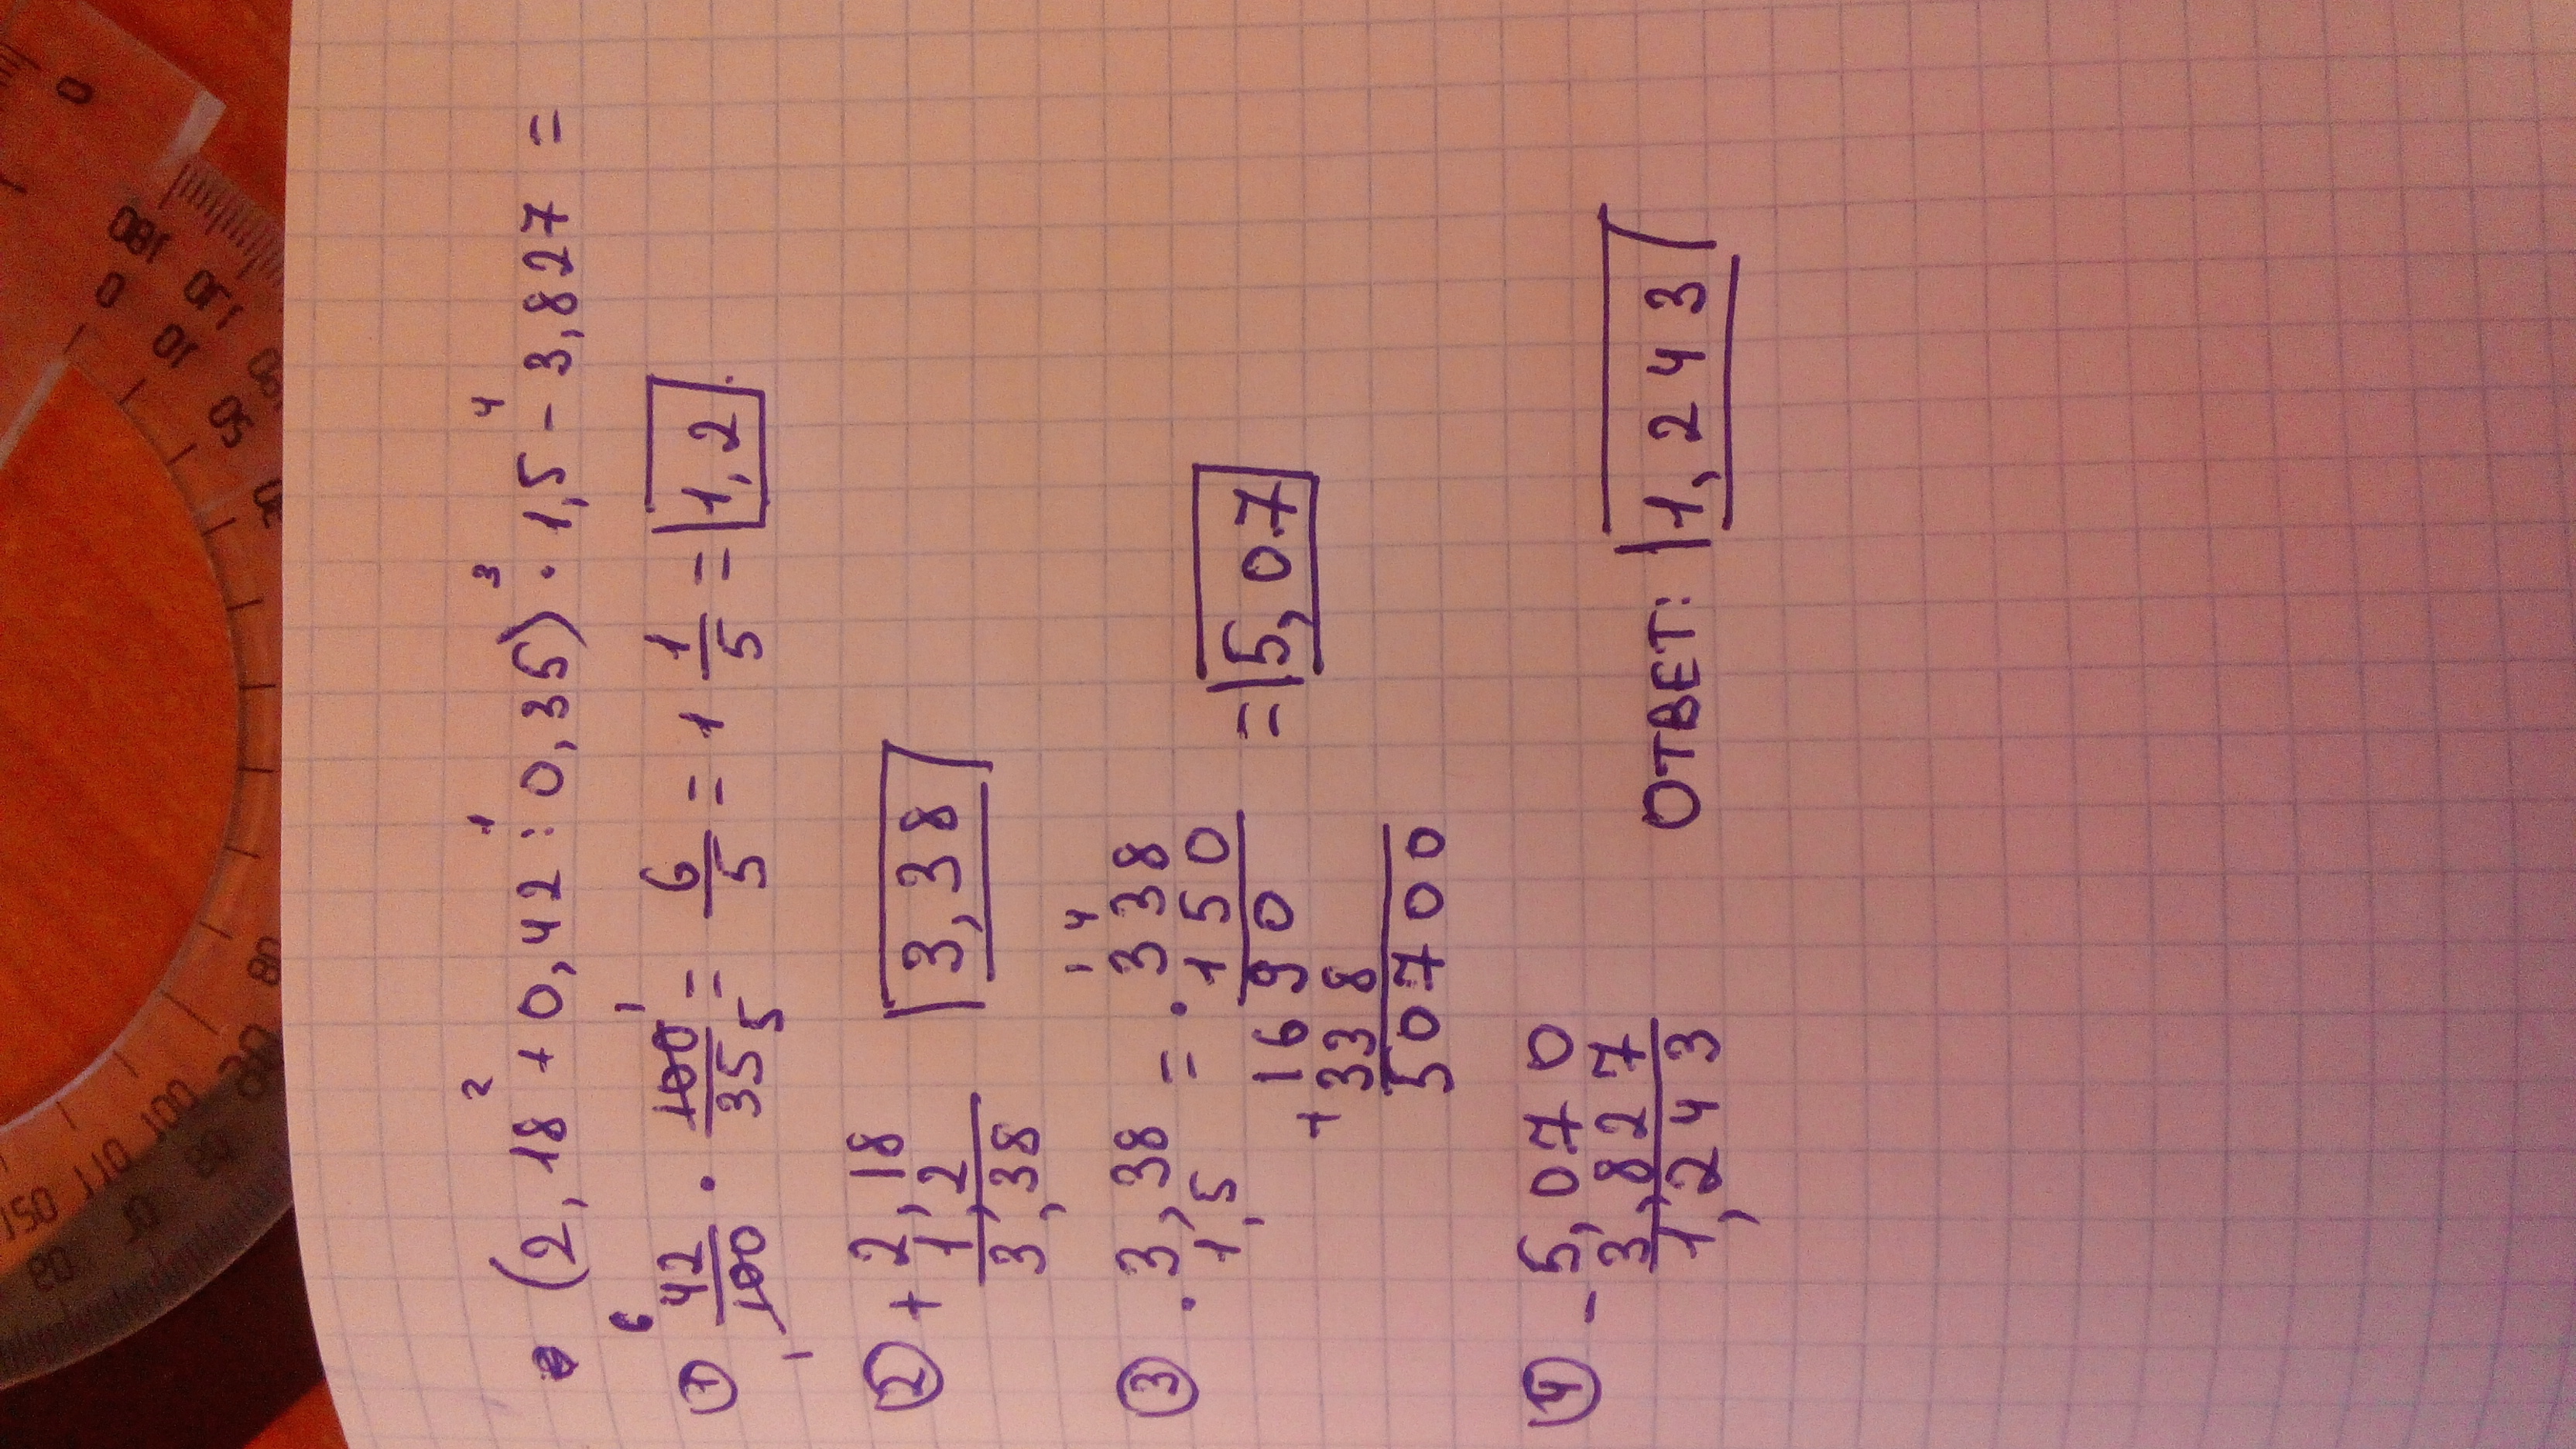 (2,18 + 0,42 : 0,35) · 1,5 - 3,827 =
2 1 3 4
① 42/100 · 100/35 = 6/5 = 1 1/5 = 1,2
6 1 1 5
② + 2,18
1,2
3,38
3,38
③ · 3,38 = · 338
1,5 150
1 4
1690
+ 338
50700
= 5,07
④ - 5,070
3,827
1,243
ОТВЕТ: 1,243